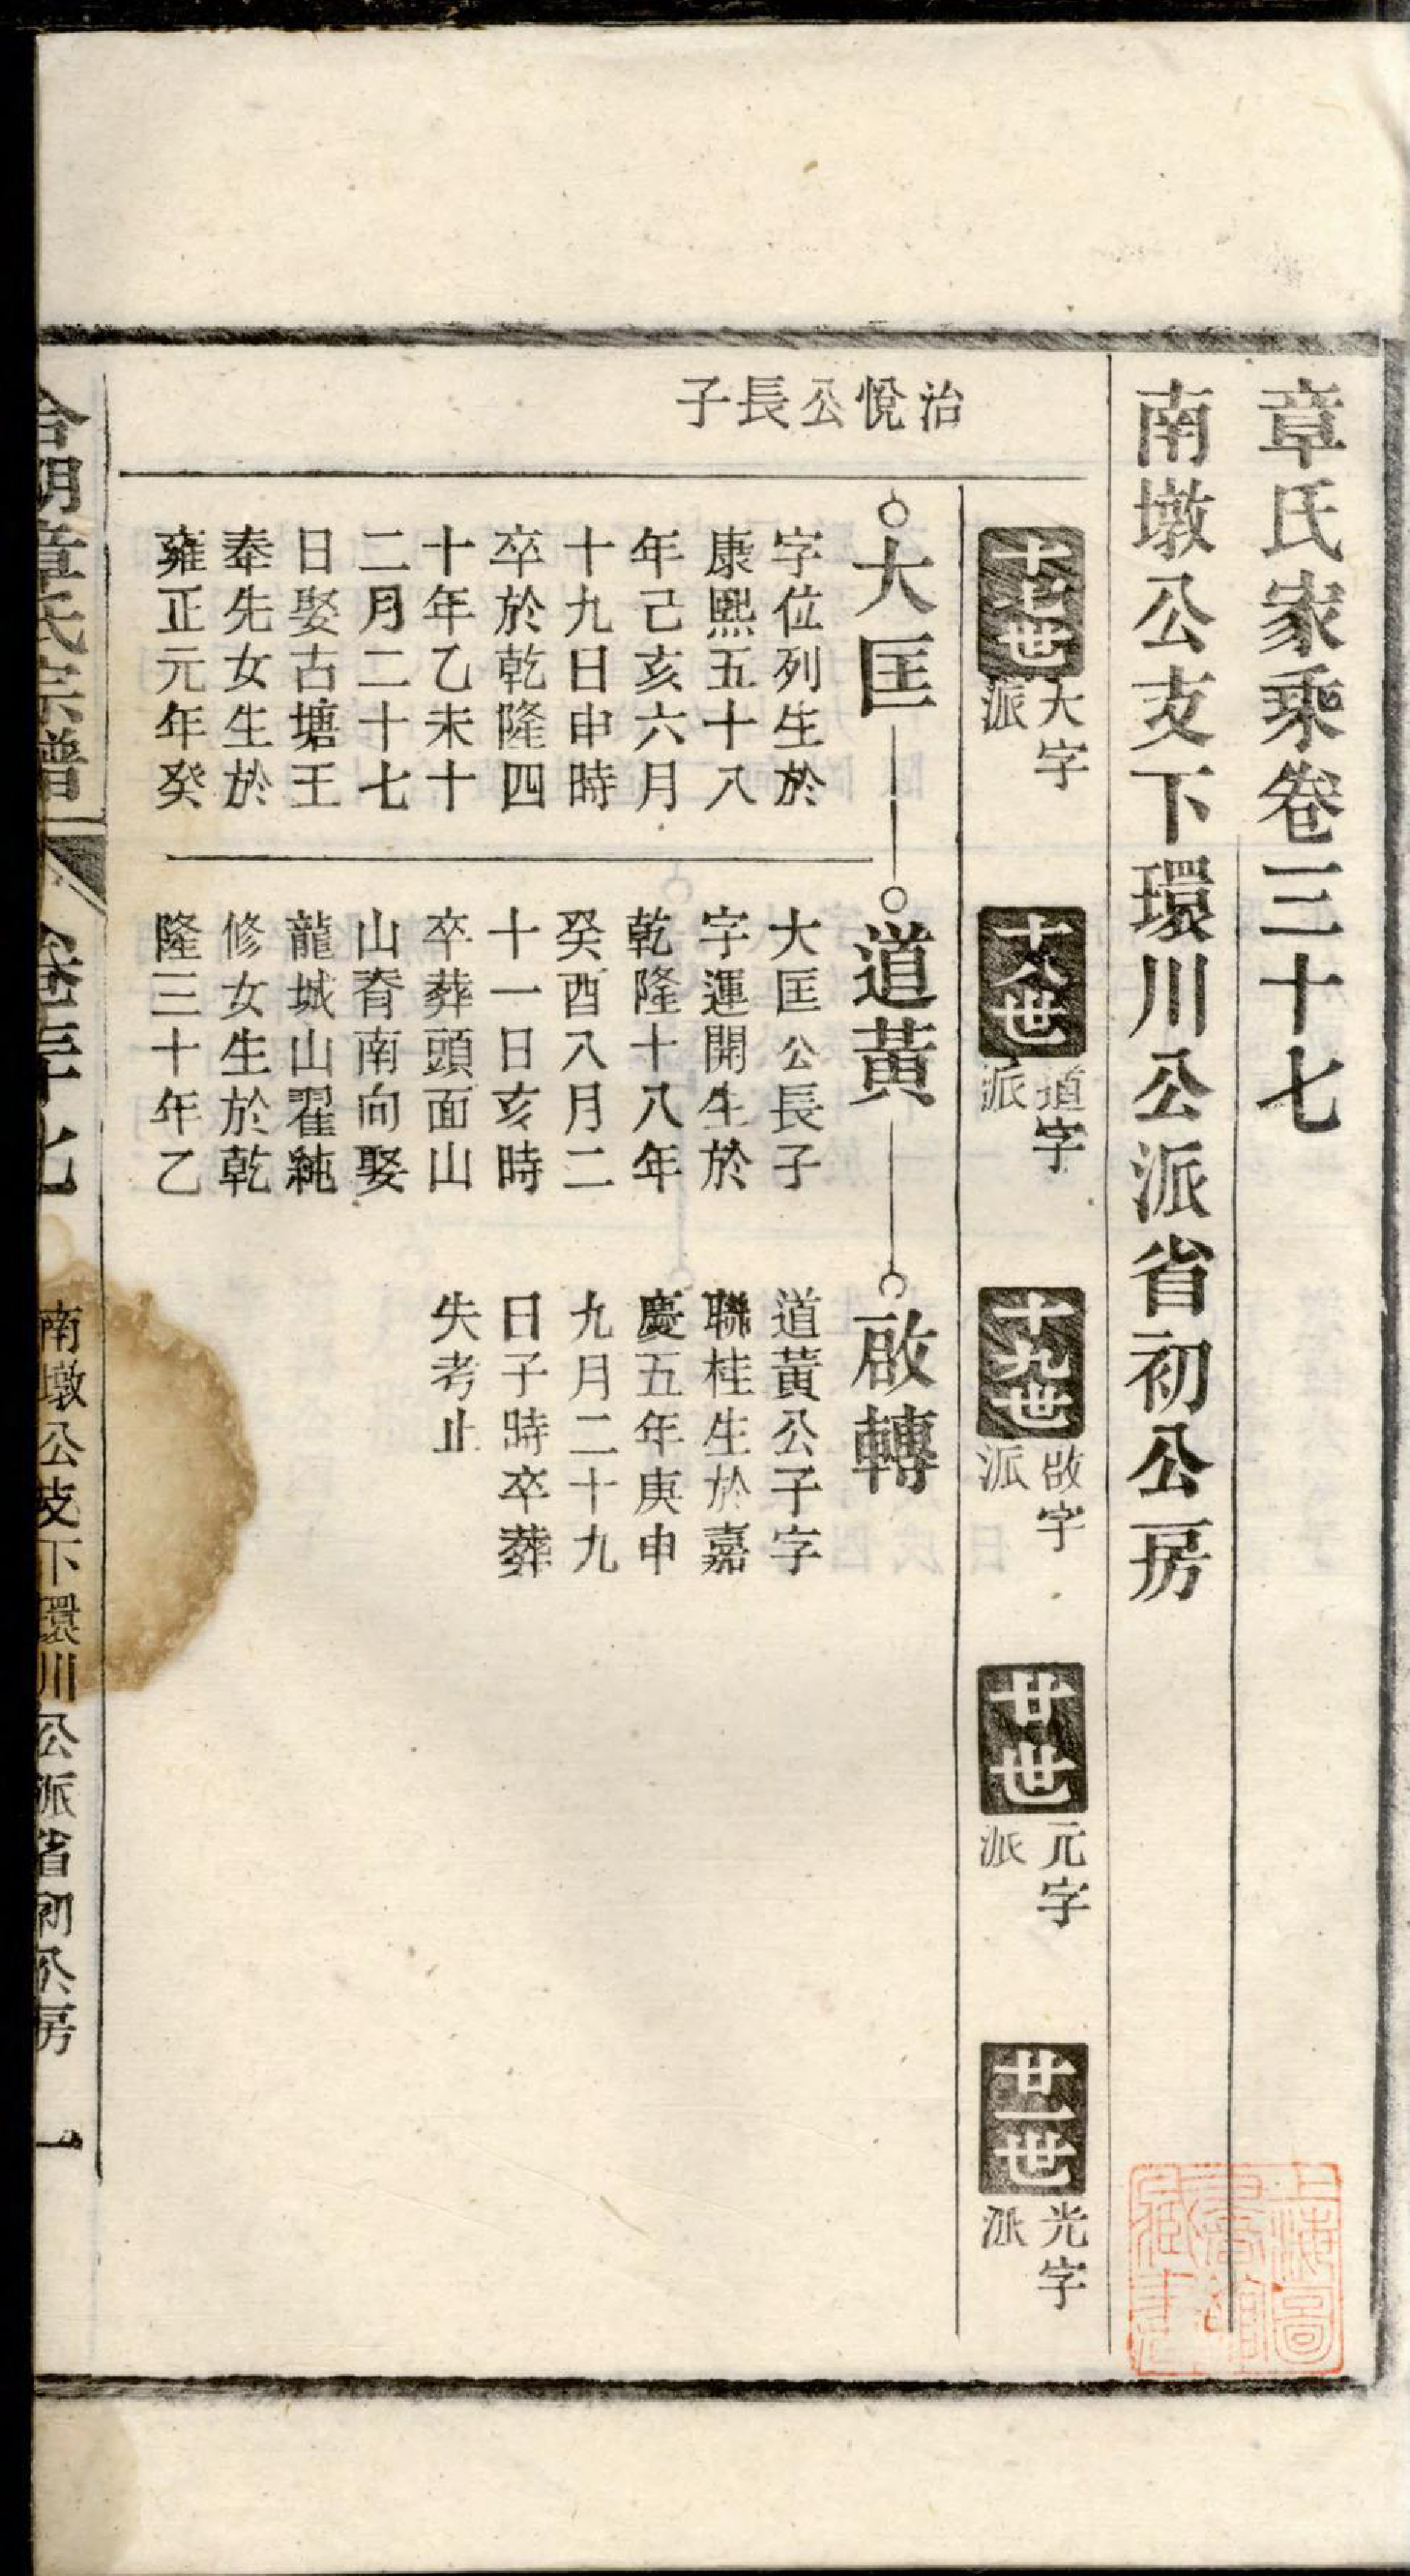 章氏家乘卷三十七
南墩公支下環川公派省初公房
十七世
大字
派
十八世
道字
派
十九世
啟字
派
廿世
元字
派
廿一世
光字
派
治悅公長子
大匡
字位列生於
康熙五十八
年己亥六月
十九日申時
卒於乾隆四
十年乙未十
二月二十七
日娶古塘王
奉先女生於
雍正元年癸
道黃
大匡公長子
字運開生於
乾隆十八年
癸酉八月二
十一日亥時
卒葬頭面山
山脊南向娶
龍城山翟純
修女生於乾
隆三十年乙
啟轉
道黃公子字
聯桂生於嘉
慶五年庚申
九月二十九
日子時卒葬
失考止
章氏宗譜
卷三十七
南墩公支下環川公派省初公房
一
上海圖
書館
藏書